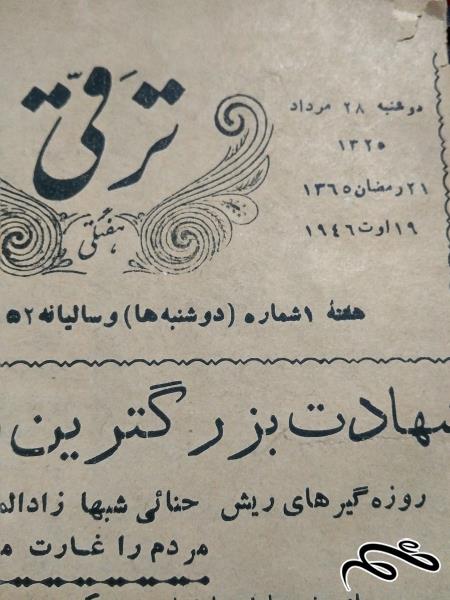 دوشنبه ۲۸ مرداد
۱۳۲۵
۲۱ رمضان ۱۳۶۵
۱۹ اوت ۱۹۴۶
ترقی
هفتگی
هفتهٔ ۱ شماره (دوشنبه‌ها) و سالیانه ۵۲
شهادت بزرگترین
روزه‌گیرهای ریش حنائی شبها زادالم
مردم را غارت م